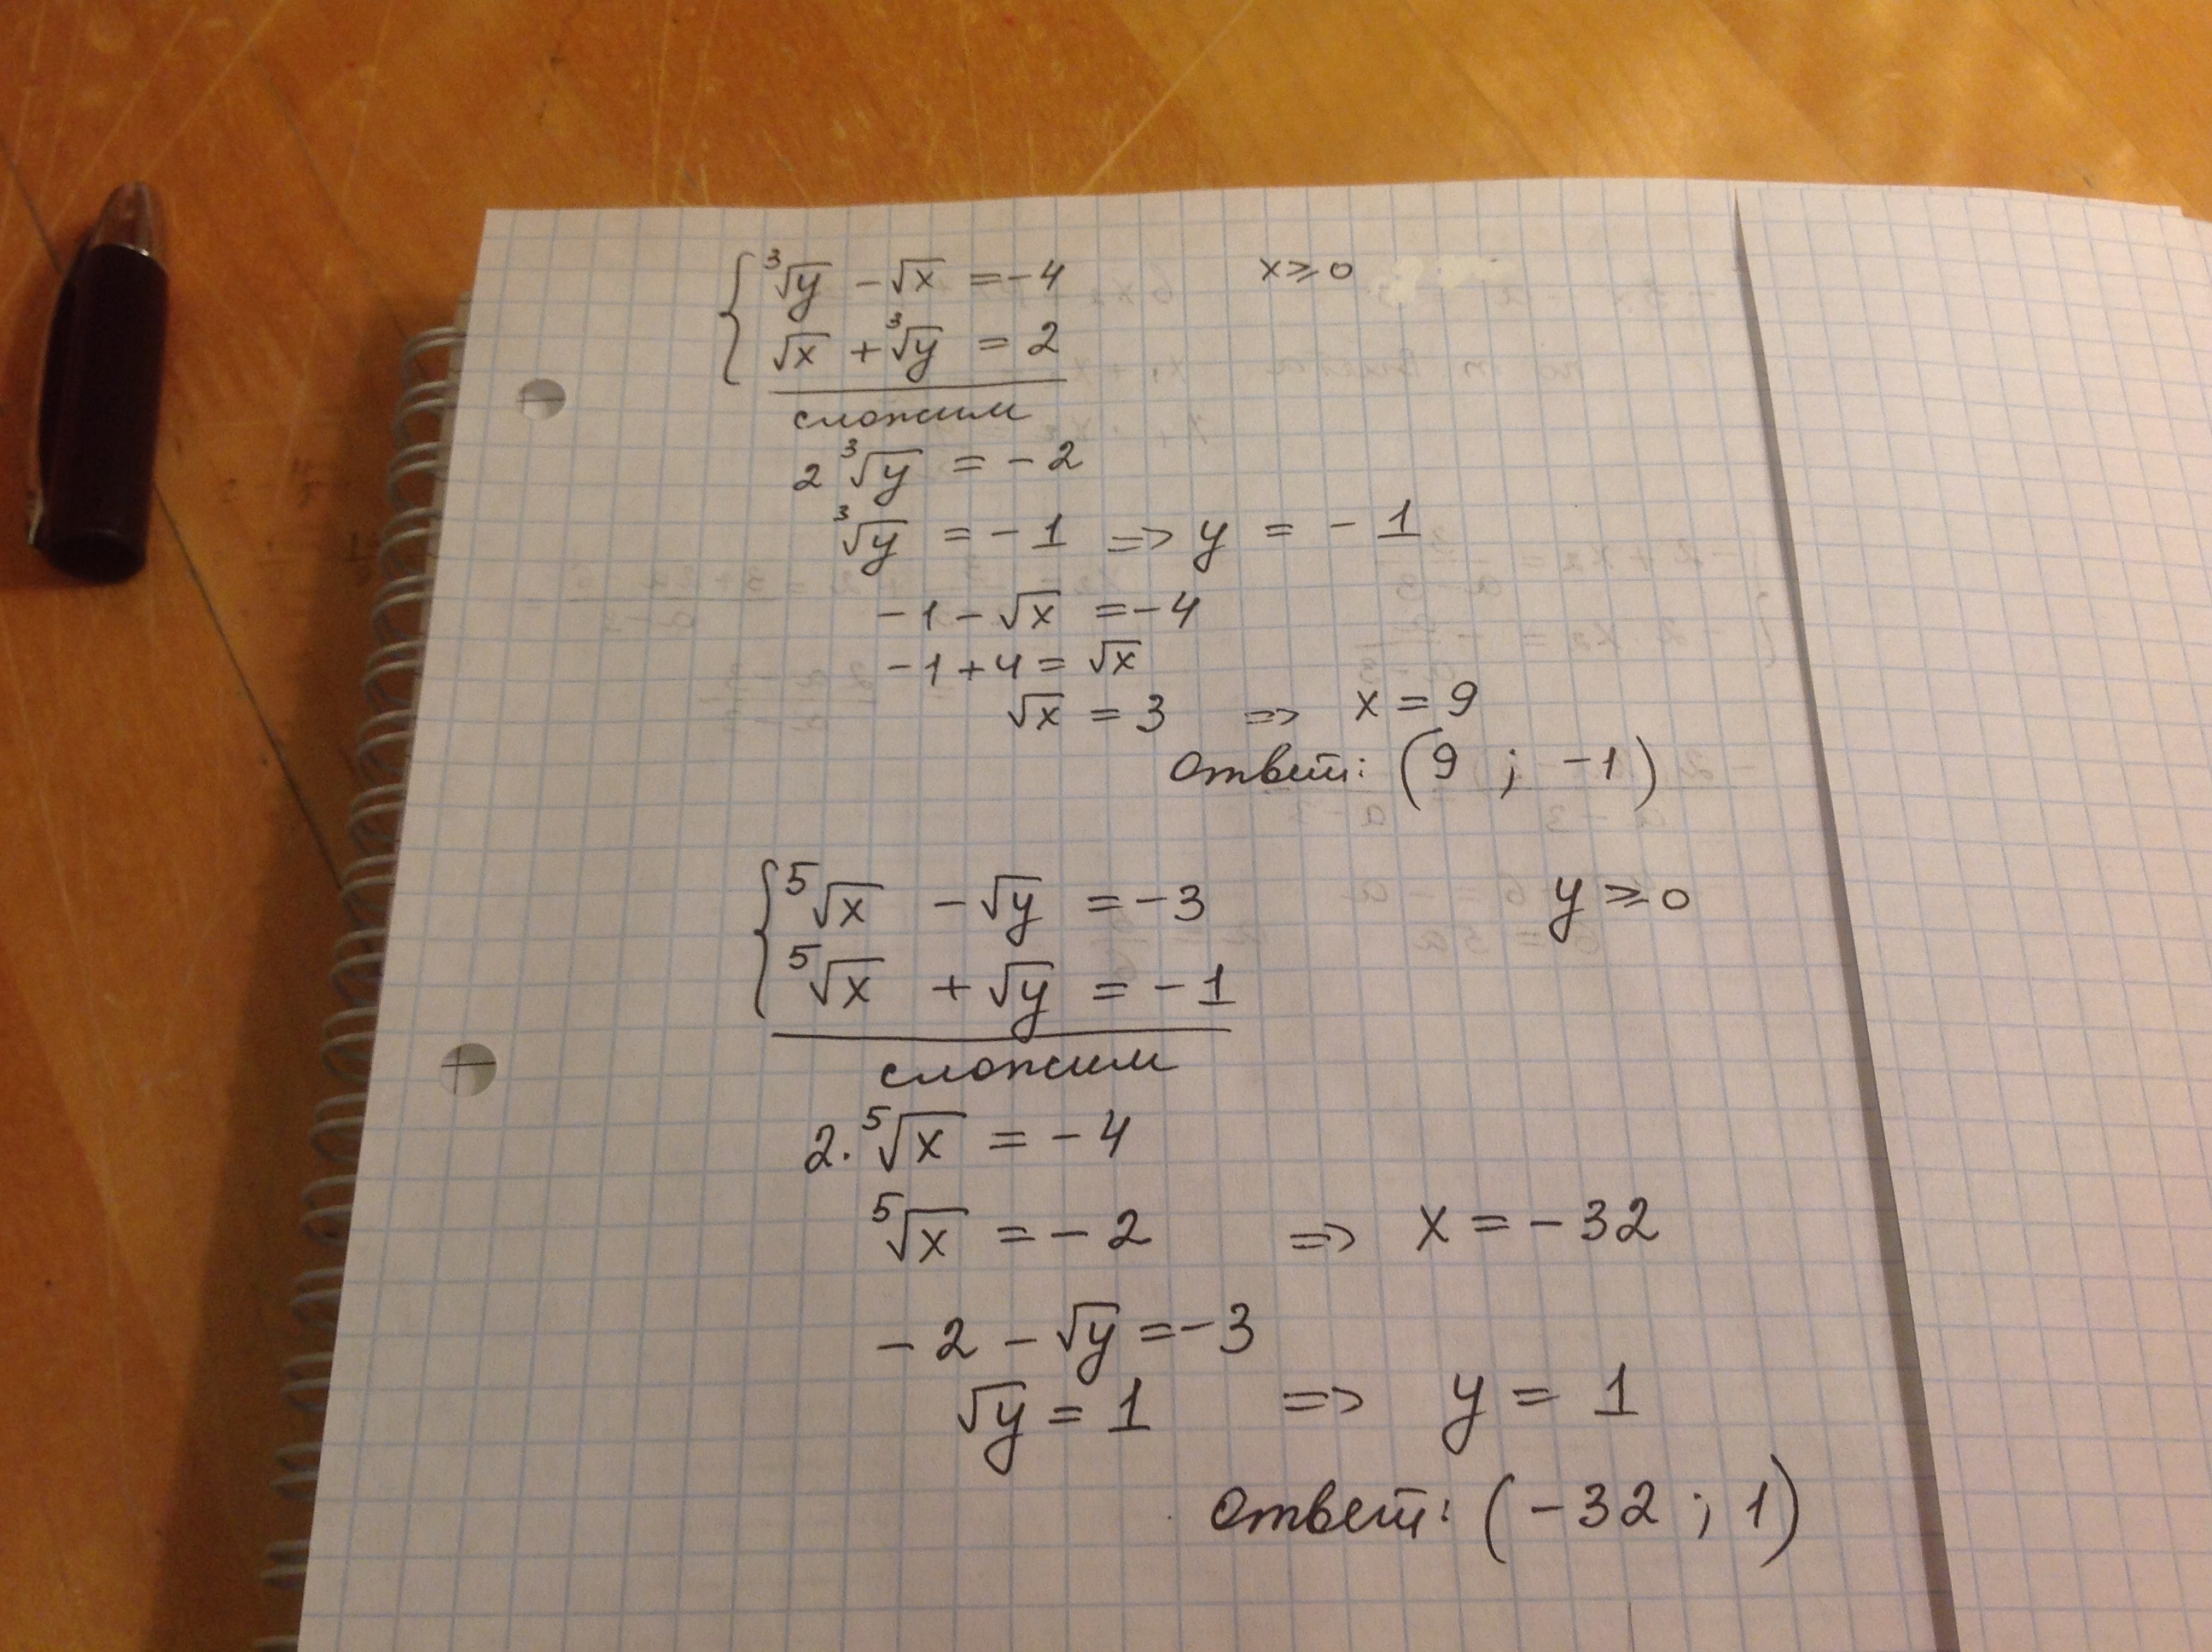 { ∛y − √x = −4    x ≥ 0
√x + ∛y = 2
сложим
2 ∛y = −2
∛y = −1 => y = −1
−1 − √x = −4
−1 + 4 = √x
√x = 3 => x = 9
Ответ: (9 ; −1)
{ ⁵√x − √y = −3    y ≥ 0
⁵√x + √y = −1
сложим
2 · ⁵√x = −4
⁵√x = −2 => x = −32
−2 − √y = −3
√y = 1 => y = 1
Ответ: (−32 ; 1)